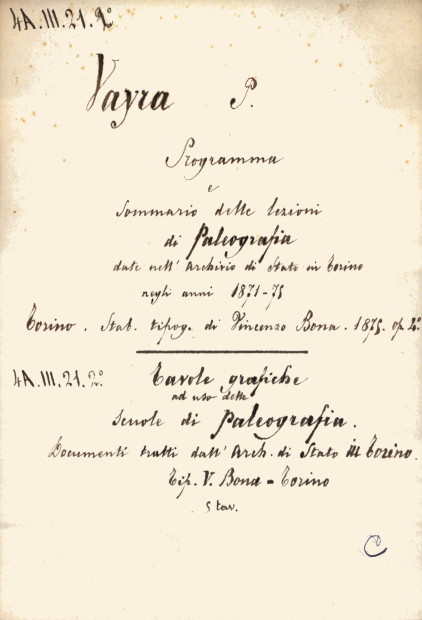 4A.III.21.2°
Vayra P.
Programma
e
Sommario delle lezioni
di Paleografia
date nell' Archivio di Stato in Torino
negli anni 1871-75
Torino. Stab. tipog. di Vincenzo Bona. 1875. op. 2°
4A.III.21.2° Tavole grafiche
ad uso delle
Scuole di Paleografia.
Documenti tratti dall' Arch. di Stato in Torino.
Tip. V. Bona - Torino
5 tav.
C